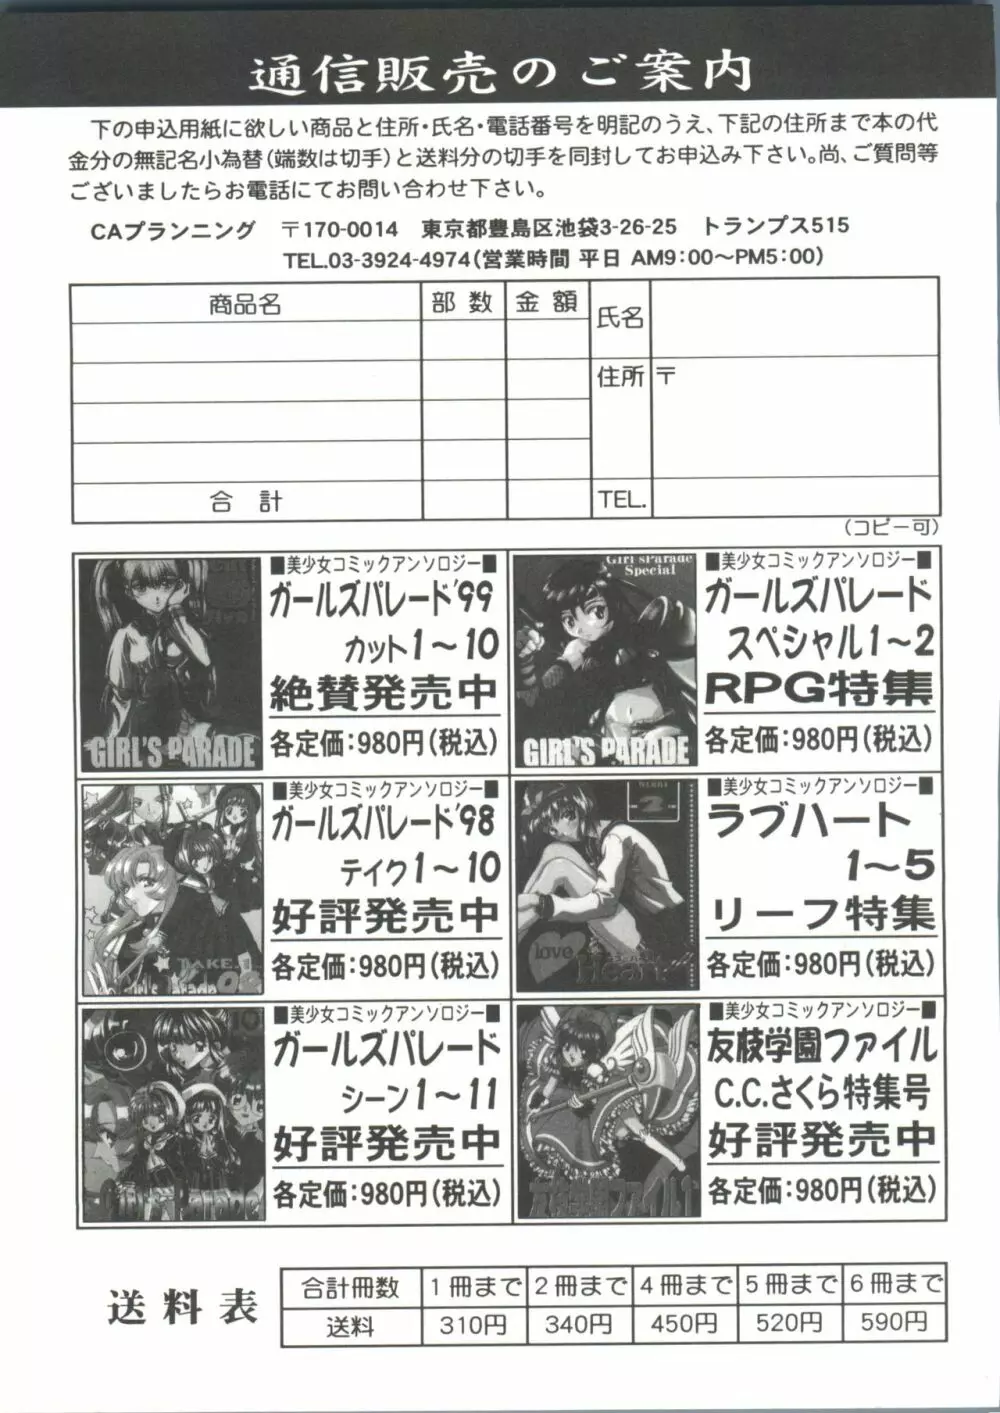 通信販売のご案内
下の申込用紙に欲しい商品と住所・氏名・電話番号を明記のうえ、下記の住所まで本の代
金分の無記名小為替(端数は切手)と送料分の切手を同封してお申込み下さい。尚、ご質問等
ございましたらお電話にてお問い合わせ下さい。
CAプランニング 〒170-0014 東京都豊島区池袋3-26-25 トランプス515
TEL.03-3924-4974(営業時間 平日 AM9:00〜PM5:00)
商品名 部数 金額 氏名
住所 〒
合計 TEL.
(コピー可)
■美少女コミックアンソロジー■
ガールズパレード'99
カット1〜10
絶賛発売中
各定価:980円(税込)
GIRL'S PARADE
■美少女コミックアンソロジー■
ガールズパレード
スペシャル1〜2
RPG特集
各定価:980円(税込)
Girl's Parade
Special
GIRL'S PARADE
■美少女コミックアンソロジー■
ガールズパレード'98
テイク1〜10
好評発売中
各定価:980円(税込)
TAKE.1
Girl's Parade 98
■美少女コミックアンソロジー■
ラブハート
1〜5
リーフ特集
各定価:980円(税込)
2
love
Heart
■美少女コミックアンソロジー■
ガールズパレード
シーン1〜11
好評発売中
各定価:980円(税込)
10
Girl's Parade
■美少女コミックアンソロジー■
友枝学園ファイル
C.C.さくら特集号
好評発売中
各定価:980円(税込)
友枝学園ファイル1
送料表
合計冊数 1冊まで 2冊まで 4冊まで 5冊まで 6冊まで
送料 310円 340円 450円 520円 590円